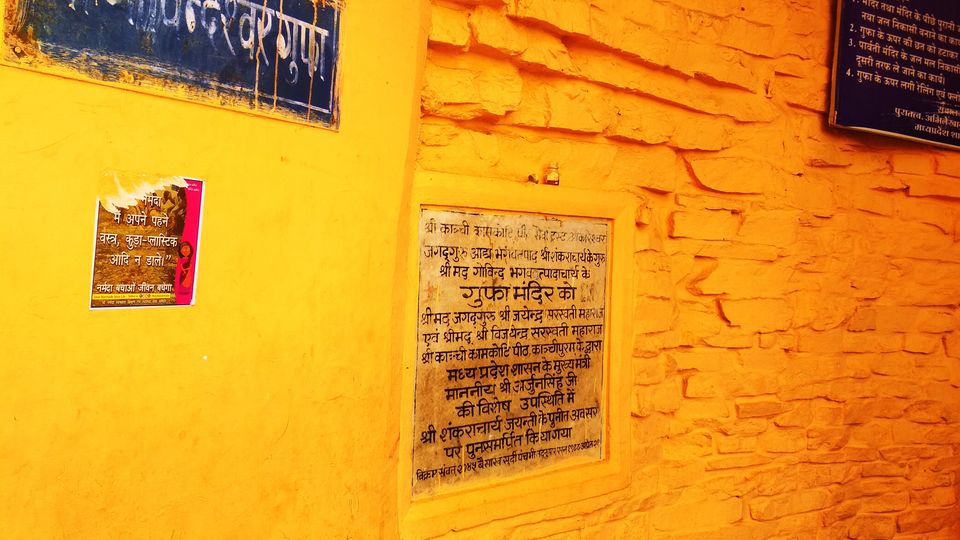 श्वरगुफा
नर्मदा
में अपने पहने
वस्त्र, कुड़ा-प्लास्टिक
आदि न डाले।"
नर्मदा बचाओं जीवन बचेगा
श्री काञ्ची कामकोटि
जगद्गुरु आद्य भगवत्पाद श्रीशंकराचार्य के गुरु
श्रीमद् गोविन्द भगवत्पादाचार्य के
गुफा मंदिर को
श्रीमद् जगद्गुरु श्री जयेन्द्र सरस्वती महाराज
एवं श्रीमद् श्री विजयेन्द्र सरस्वती महाराज
श्री काञ्ची कामकोटि पीठ, काञ्चीपुरम के द्वारा
मध्य प्रदेश शासन के मुख्य मंत्री
माननीय श्री अर्जुनसिंह जी
की विशेष उपस्थिति में
श्री शंकराचार्य जयन्ती के पुनीत अवसर
पर पुनःसमर्पित किया गया
विक्रम संवत २०४५ बैसाख सुदी पंचमी
1. मंदिर तथा मंदिर के पीछे पुरानी
नया जल निकासी बनाने का कार्य
2. गुफा के ऊपर की छत को हटाकर
3. पार्वती मंदिर के जल मल निकासी
दूसरी तरफ ले जाने का कार्य।
4. गुफा के ऊपर लगी रेलिंग एवं
पुरातत्व, अभिलेखागार
मध्यप्रदेश